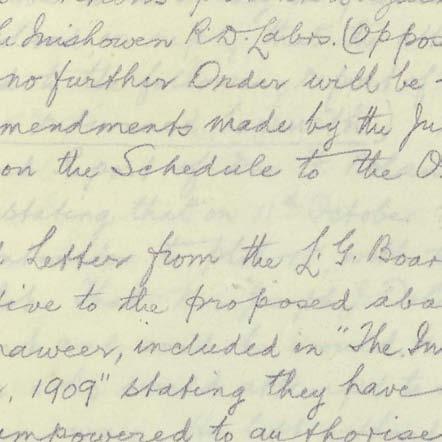 Inishowen R.D. Labrs. (Oppos
no further Order will be
mendments made by the Ju
on the Schedule to the O
stating that on 11th October
Letter from the L. G. Boar
tive to the proposed aba
naweer, included in "The In
, 1909" stating they have
mpowered to authorise